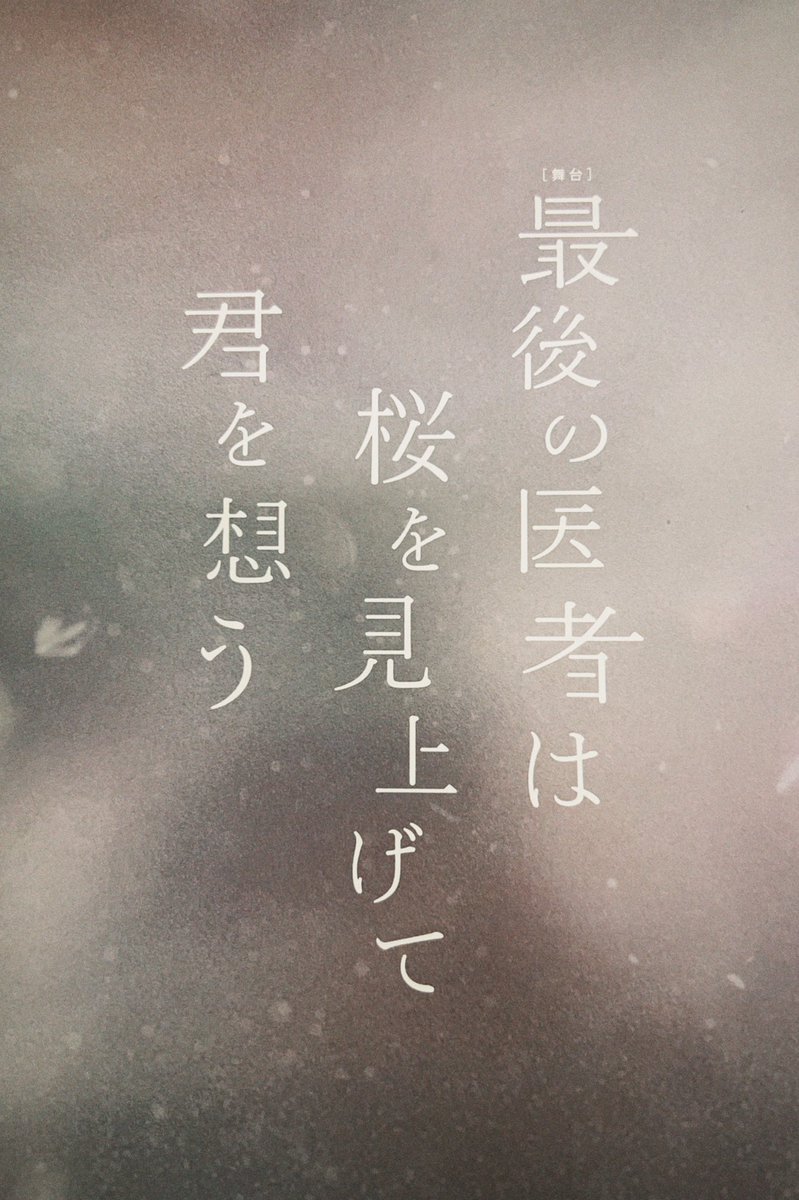 [舞台]
最後の医者は
桜を見上げて
君を想う